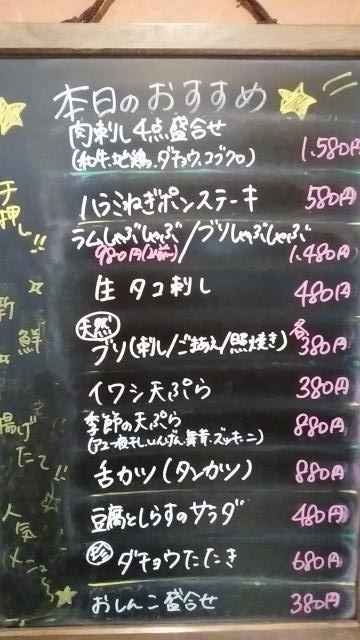 本日のおすすめ
肉刺し4点盛合せ 1,580円
(和牛,地鶏,ダチョウ,コブクロ)
ハラミねぎポンステーキ 580円
ラムしゃぶしゃぶ/ブリしゃぶしゃぶ
980円 1,480円
生タコ刺し 480円
天然 各
ブリ(刺し/ごまあえ/照焼き) 380円
イワシ天ぷら 380円
季節の天ぷら 880円
舌カツ(タンカツ) 880円
豆腐としらすのサラダ 480円
珍 ダチョウたたき 680円
おしんこ盛合せ 380円
押し!!
新鮮
揚げ
たて!!
人気
メニュー